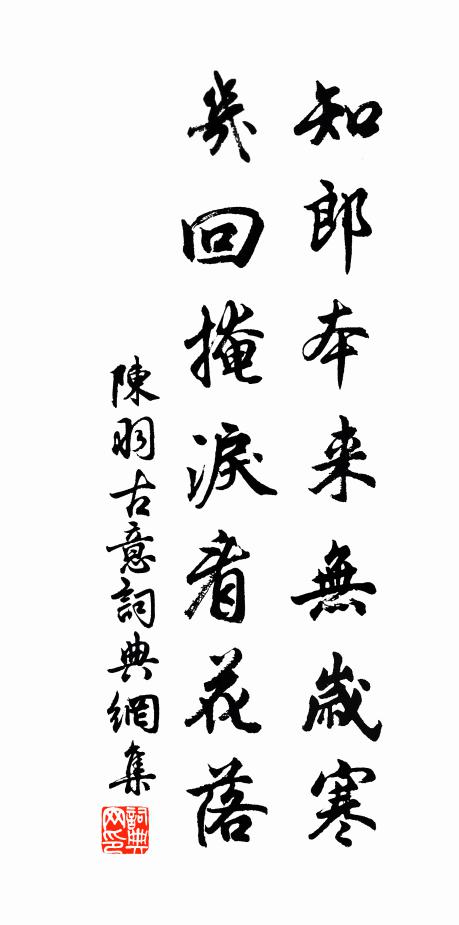 知郎本来無歳寒
幾回掩淚看花落
陳羽古意詞典網集
詞典网印